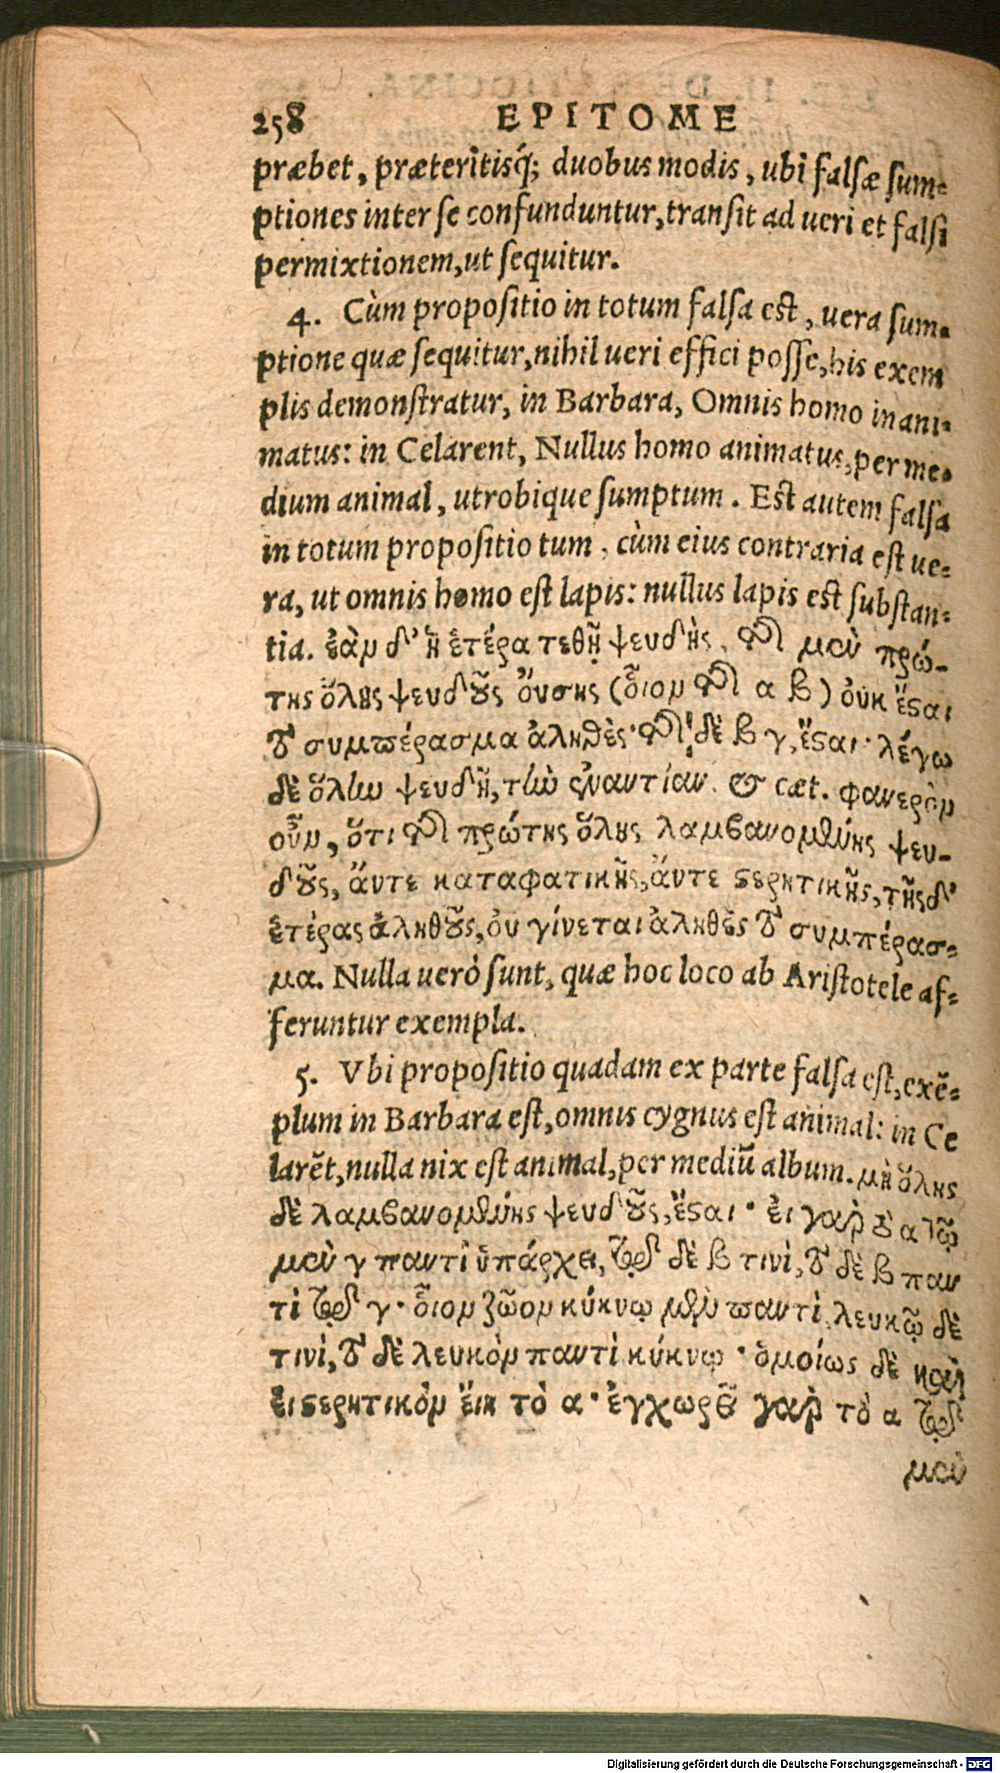 258 EPITOME
præbet, præteritisq́; duobus modis, ubi falsæ sum-
ptiones inter se confunduntur, transit ad ueri et falsi
permixtionem, ut sequitur.
4. Cùm propositio in totum falsa est, vera sum-
ptione quæ sequitur, nihil ueri effici posse, his exem
plis demonstratur, in Barbara, Omnis homo inani-
matus: in Celarent, Nullus homo animatus, per me-
dium animal, utrobique sumptum. Est autem falsa
in totum propositio tum, cùm eius contraria est ue-
ra, ut omnis homo est lapis: nullus lapis est substan-
tia. ἐὰν δ' ἡ ἑτέρα τεθῇ ψευδὴς, τῆς μὲν πρώ-
της ὅλης ψευδοῦς ὄυσης (ὅιον τῆς α β) ὀυκ ἔσται
τὸ συμπέρασμα ἀληθὲς· τῆς δὲ β γ, ἔσται· λέγω
δὲ ὅλίω ψευδῆ, τίω ἐναντίαν. & cæt. φανερὸν
οὖν, ὅτι τῆς πρώτης ὅλης λαμβανομένης ψευ-
δοῦς, ἄντε καταφατικῆς, ἄντε στερητικῆς, τῆς δ'
ἑτέρας ἀληθοῦς, ὀυ γίνεται ἀληθὲς τὸ συμπέρασ-
μα. Nulla uerò sunt, quæ hoc loco ab Aristotele af-
feruntur exempla.
5. Vbi propositio quadam ex parte falsa est, exẽ-
plum in Barbara est, omnis cygnus est animal: in Ce
larẽt, nulla nix est animal, per mediũ album. μὴ ὅλης
δὲ λαμβανομένης ψευδοῦς, ἔσται· ἐι γὰρ τὸ α τῷ
μὲν γ παντὶ ὑπάρχει, τῷ δὲ β τινὶ, τὸ δὲ β παν
τὶ τῷ γ· ὅιον ζῶον κύκνῳ μὲν παντὶ, λευκῷ δὲ
τινὶ, τὸ δὲ λευκὸν παντὶ κύκνῳ· ὁμοίως δὲ καὶ
ἐι στερητικὸν ἔιη τὸ α· ἐγχωρεῖ γὰρ τὸ α τῷ
μὲν
Digitalisierung gefördert durch die Deutsche Forschungsgemeinschaft - DFG